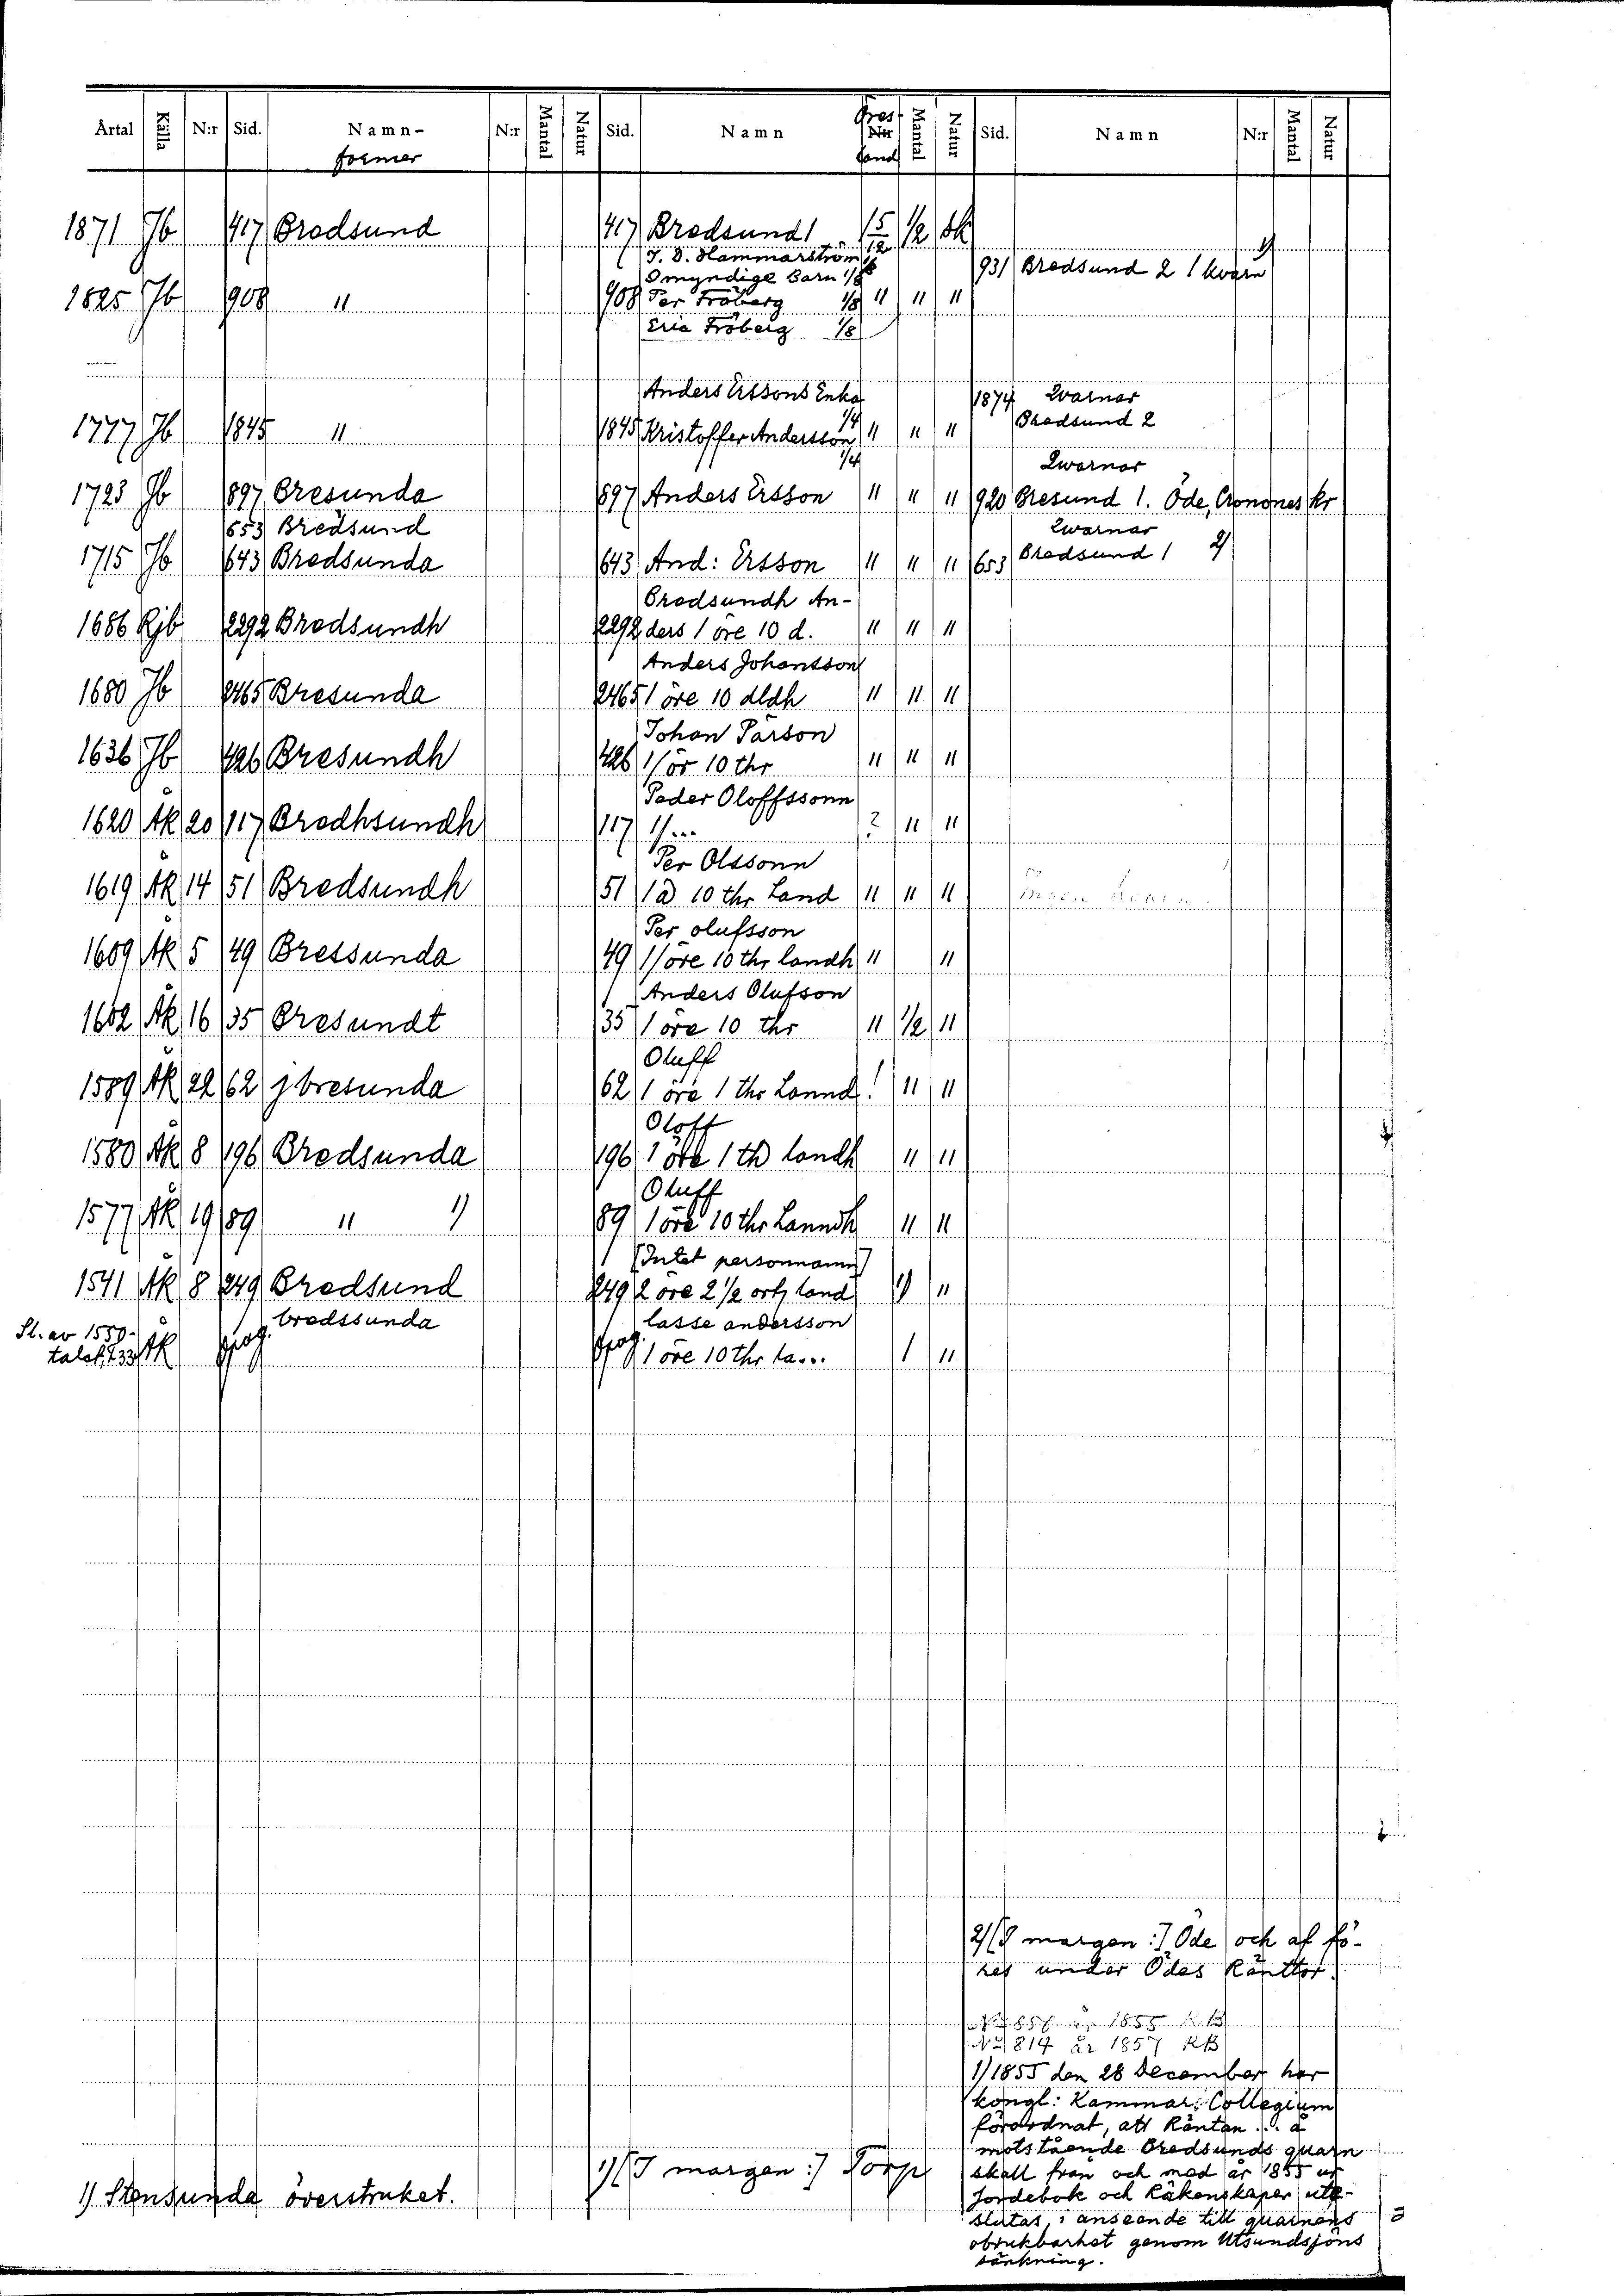 Årtal Källa N:r Sid. Namn- N:r Mantal Natur Sid. Namn N:r Mantal Natur Sid. Namn N:r Mantal Natur
former land
1871 Jb 417 Bredsund 417 Bredsund 1 5/12 1/2 sk
J. D. Hammarström
Omyndige Barn 1/8 931 Bredsund 2 1 kvarn 1)
1825 Jb 908 " 908 Per Fröberg 1/8 " " "
Eric Fröberg 1/8
Anders Erssons Enka 1/4 1874 Qvarnar
1777 Jb 1845 " 1845 Kristoffer Andersson 1/4 " " " Bredsund 2
Qwarnar
1723 Jb 897 Bresunda 897 Anders Ersson " " " 920 Bresund 1. Öde, Cronones kr
653 Bredsund Qwarnar
1715 Jb 643 Bredsunda 643 And: Ersson " " " 653 Bredsund 1 2)
Bredsundh An-
1686 Rjb 2292 Bredsundh 2292 ders 1 öre 10 d. " " "
Anders Johansson
1680 Jb 2465 Bresunda 2465 1 öre 10 dldh " " "
Johan Pärson
1636 Jb 426 Bresundh 426 1/ ör 10 thr " " "
Peder Oloffssonn
1620 Åk 20 117 Bredhsundh 117 1/... ? " "
Per Olssonn
1619 Åk 14 51 Bredsundh 51 1 a 10 thr Land " " "
Per olufsson
1609 Åk 5 49 Bressunda 49 1/ öre 10 thr landh " "
Anders Olufson
1602 Åk 16 35 Bresundt 35 1 öre 10 thr " 1/2 "
Oluff
1589 Åk 22 62 j bresunda 62 1 öre 1 thr Lannd! " "
Oloff
1580 Åk 8 196 Bredsunda 196 1 öre 1 th landh " "
Oluff
1577 Åk 19 89 " 1) 89 1 öre 10 thr Lanndh " "
[Intet personnamn]
1541 Åk 8 249 Bredsund 249 2 öre 2 1/2 ortz land 1) "
Sl. av 1550- bredssunda lasse andersson
talet, t.33 Åk opag. opag. 1 öre 10 thr la... 1 "
2/ [I margen:] Öde och af fö-
res under Ödes Ränttor.
№ 814 år 1857 RB
1) 1855 den 28 December har
kongl: Kammar: Collegium
förordnat, att Räntan ... å
motstående Bredsunds quarn
skall från och med år 1855 ur
Jordebok och Räkenskaper ute-
slutas, i anseende till quarnens
obrukbarhet genom Utsundsjöns
sänkning.
1) [I margen:] Torp
1) Stensunda överstruket.